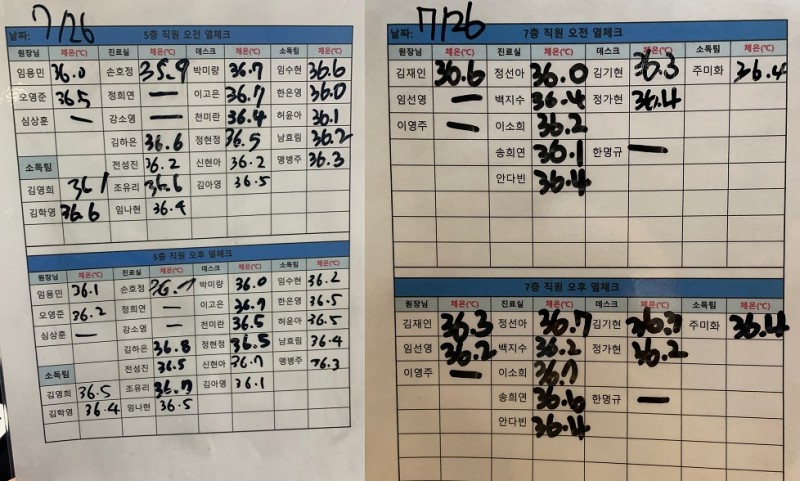 날짜: 7/26 5층 직원 오전 열체크
원장님 체온(℃) 진료실 체온(℃) 데스크 체온(℃) 소독팀 체온(℃)
임용민 36.0 손호정 35.9 박미량 36.7 임수현 36.6
오영준 36.5 정희연 — 이고은 36.7 한은영 36.0
심상훈 — 강소영 — 천미란 36.4 허윤아 36.1
김하은 36.6 정현정 36.5 남효림 36.2
소독팀 전성진 36.2 신현아 36.2 맹병주 36.3
김영희 36.1 조유리 36.6 김아영 36.5
김학영 36.6 임나현 36.4
5층 직원 오후 열체크
원장님 체온(℃) 진료실 체온(℃) 데스크 체온(℃) 소독팀 체온(℃)
임용민 36.1 손호정 36.7 박미량 36.0 임수현 36.2
오영준 36.2 정희연 — 이고은 36.7 한은영 36.5
심상훈 — 강소영 — 천미란 36.5 허윤아 36.5
김하은 36.8 정현정 36.5 남효림 36.4
소독팀 전성진 36.5 신현아 36.7 맹병주 36.3
김영희 36.5 조유리 36.7 김아영 36.1
김학영 36.4 임나현 36.5
날짜: 7/26 7층 직원 오전 열체크
원장님 체온(℃) 진료실 체온(℃) 데스크 체온(℃) 소독팀 체온(℃)
김재인 36.6 정선아 36.0 김기현 36.3 주미화 36.4
임선영 — 백지수 36.4 정가현 36.4
이영주 — 이소희 36.2
송희연 36.1 한명규 —
안다빈 36.4
7층 직원 오후 열체크
원장님 체온(℃) 진료실 체온(℃) 데스크 체온(℃) 소독팀 체온(℃)
김재인 36.3 정선아 36.7 김기현 36.3 주미화 36.4
임선영 36.2 백지수 36.2 정가현 36.2
이영주 — 이소희 36.7
송희연 36.6 한명규 —
안다빈 36.4